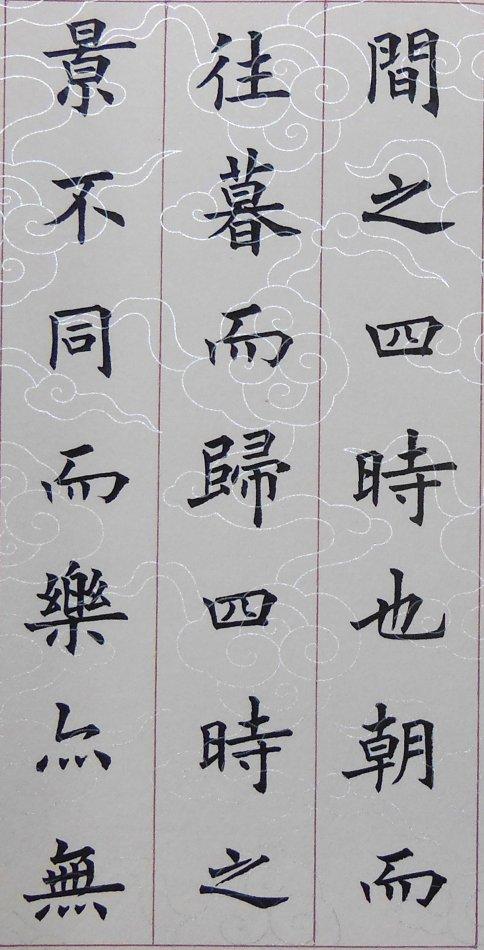 間之四時也朝而
往暮而歸四時之
景不同而樂亦無